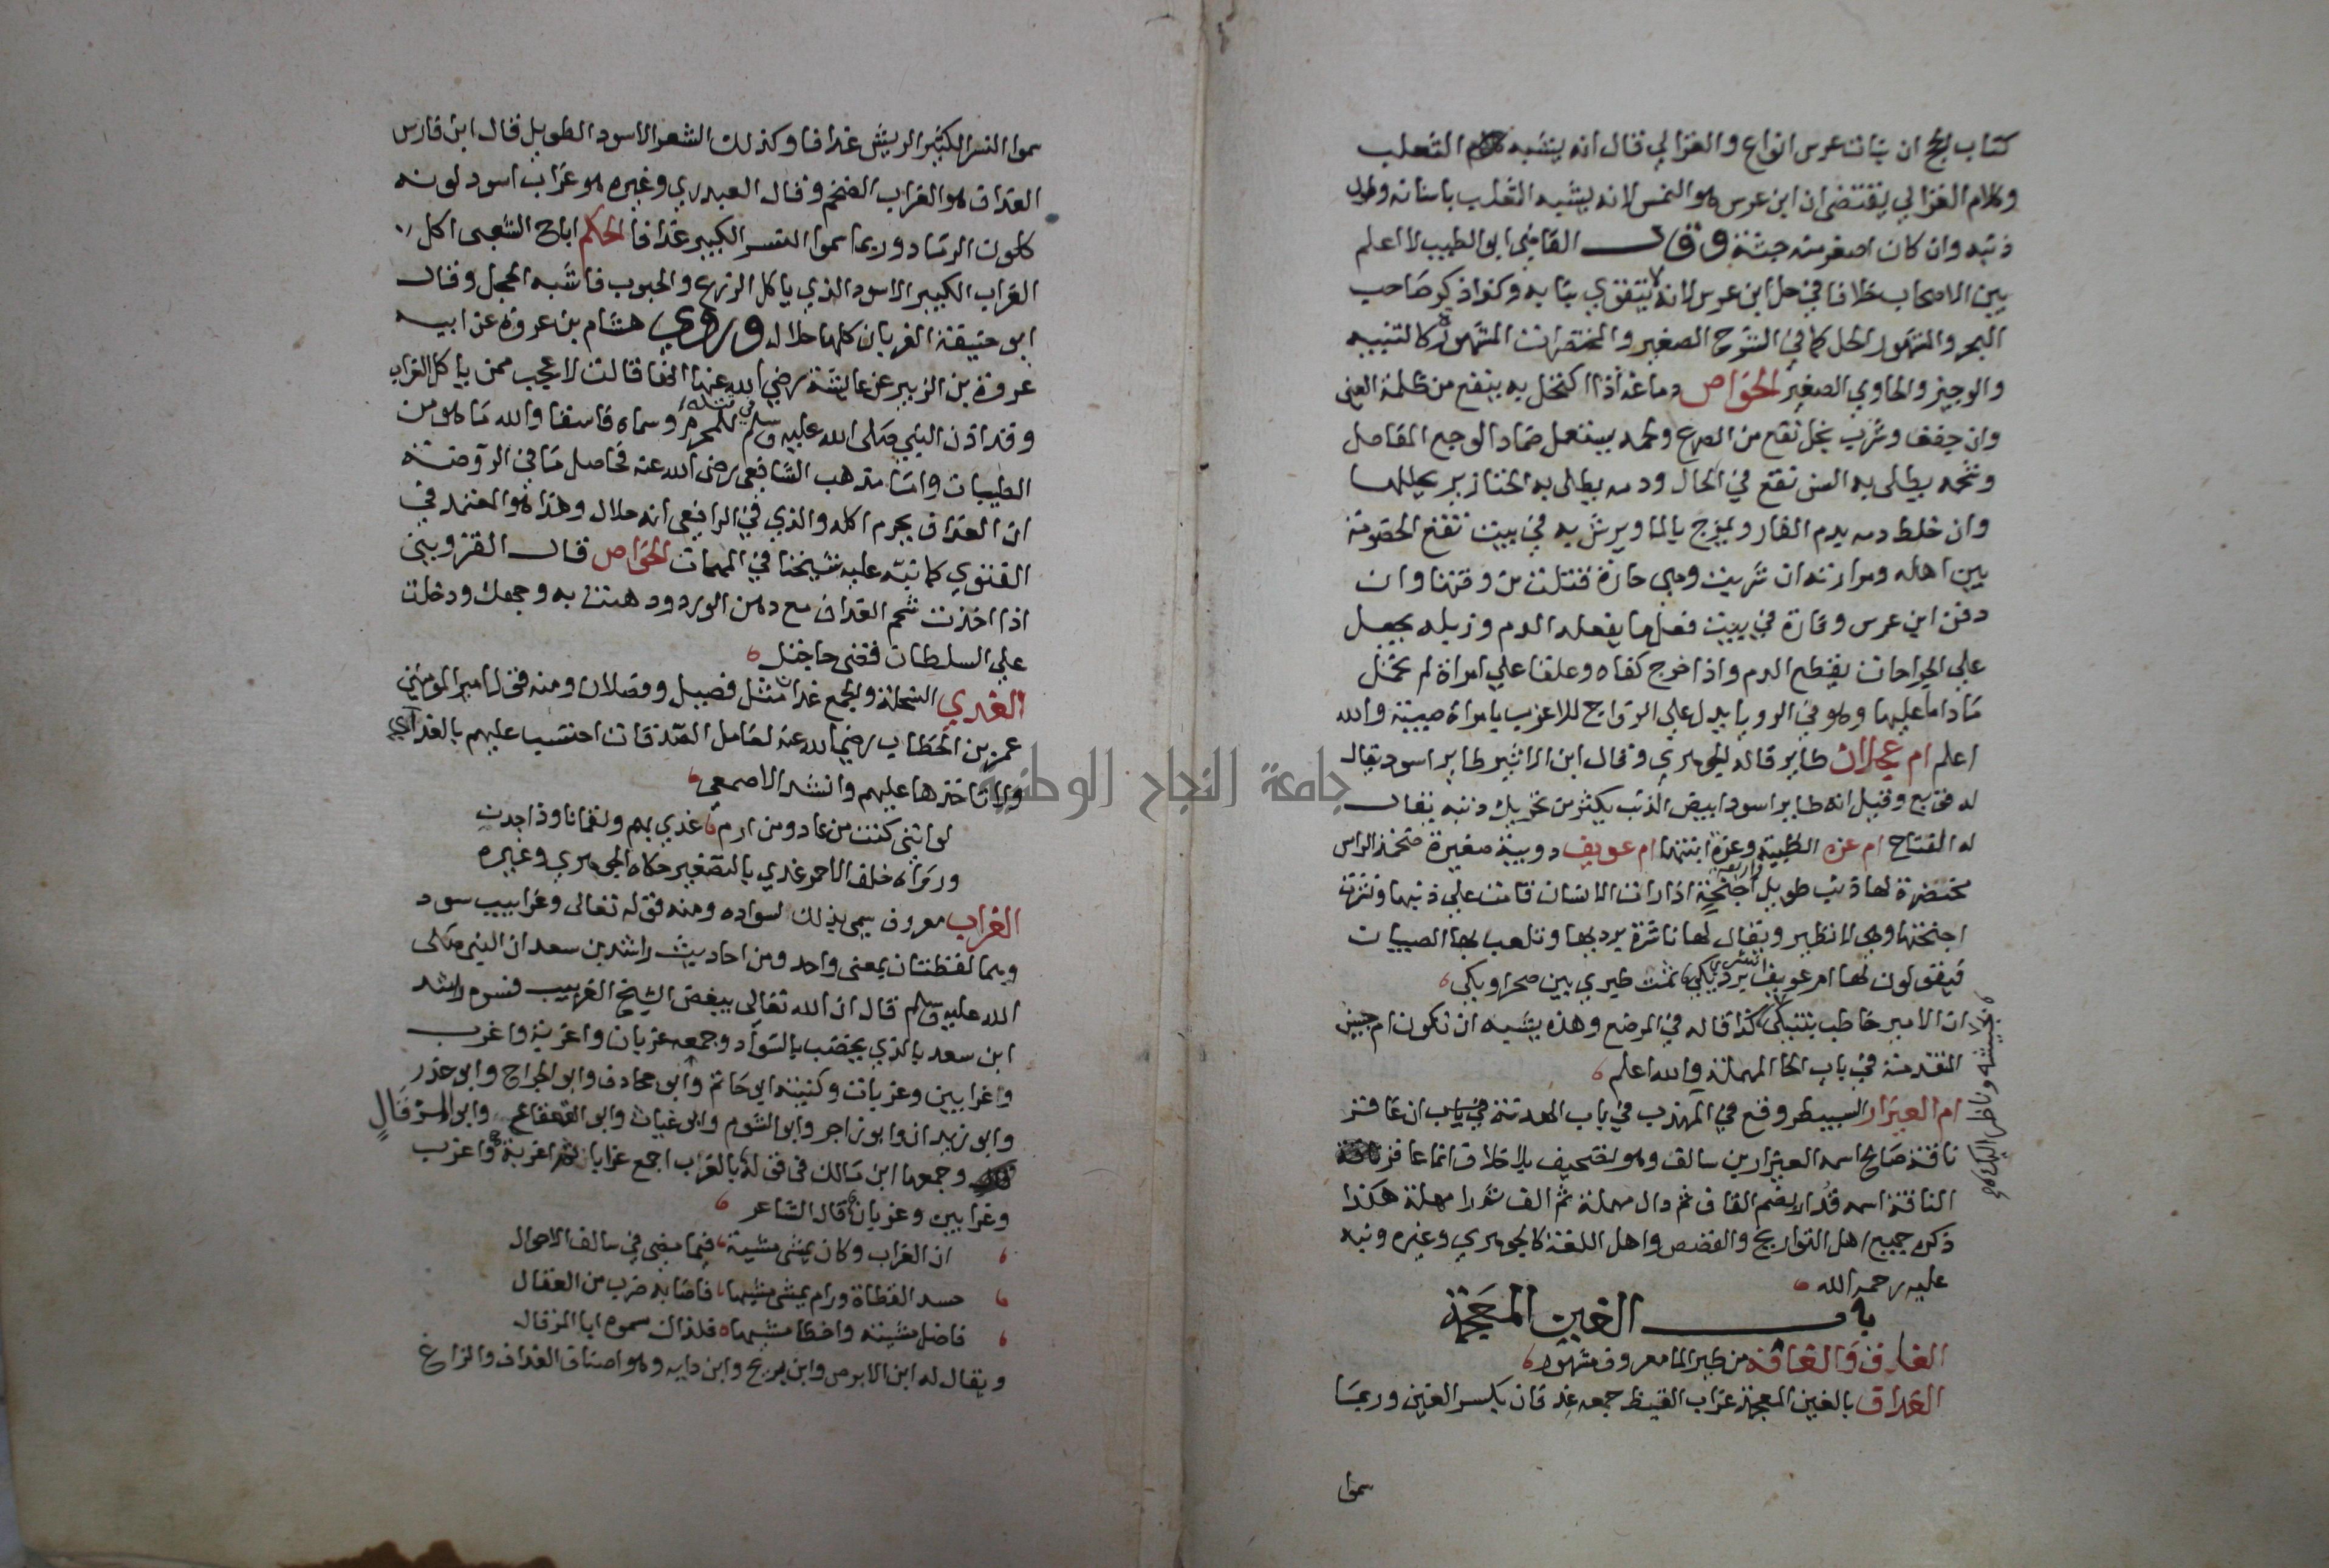 كتاب الحج ان بنات عرس انواع والغزالي قال انه يشبه الثعلب
وكلام الغزالي يقتضي ان ابن عرس هو النمس لانه يشبه الثعلب باسنانه وطول
ذنبه وان كان اصغر منه جثة وقال القاضي ابو الطيب لا اعلم
بين الاصحاب خلافا في حل ابن عرس لانه لا يتقوي بنابه وكذا ذكر صاحب
البحر والمشهور الحل كما في الشرح الصغير والمختصرات المشهورة كالتنبيه
والوجيز والحاوي الصغير الخواص دماغه اذا اكتحل به ينفع من ظلمة العين
وان جفف وشرب بخل نفع من الصرع ولحمه يستعمل ضمادا لوجع المفاصل
وشحمه يطلى به السن تقع في الحال ودمه يطلى به الخنازير يحللها
وان خلط دمه بدم الفار ويمزج بالما ويرش به في بيت تقع الخصومة
بين اهله ومرارته ان شربت وهي حارة قتلت من وقتها وان
دفن ابن عرس وفارة في بيت فعلا ما يفعله الدم وزبله يجعل
على الجراحات يقطع الدم واذا اخرج كفاه وعلقا علي امراة لم تحمل
ما داما عليها وهو في الرويا يدل علي الزواج للاعزب بامراة صبية والله
اعلم ام عجلان طاير قاله الجوهري وقال ابن الاثير طاير اسود يقال
له قوبع وقيل انه طاير اسود ابيض الذنب يكثر من تحريك ذنبه يقال
له الفتاح ام عزه الظبية وعزة ابنتها ام عويف دويبة صغيرة ضخمة الراس
مخضرة لها ذنب طويل واربعة اجنحة اذا رات الانسان قامت علي ذنبها ونشرت
اجنحتها وهي لا تطير ويقال لها ناشرة برديها وتلعب بها الصبيان
فيقولون لها ام عويف انشري برديكي ثمت طيري بين صحراويكي
ان الامير خاطب بنتيكي كذا قاله في المرصع وهذه يشبه ان تكون ام حبين
المتقدمة في باب الحا المهملة والله اعلم
ام العيزار السبيطر وقع في المهذب في باب الهدنة ان عاقر
ناقة صالح اسمه العيزار بن سالف وهو تصحيف بلا خلاف انما عاقر
الناقة اسمه قدار بضم القاف ثم دال مهملة ثم الف ثم را مهملة هكذا
ذكره جميع اهل التواريخ والقصص واهل اللغة كالجوهري وغيره ونبه
عليه رحمه الله
باب الغين المعجمة
الغاق والغاقه من طير الما معروف مشهور
الغداق بالغين المعجمة غراب القيظ جمعه غدقان بكسر الغين وربما
سموا
سموا النسر الكثير الريش غدافا وكذلك الشعر الاسود الطويل قال ابن فارس
الغداف هو الغراب الضخم وقال العبدري وغيره هو غراب اسود لونه
كلون الرماد وربما سموا النسر الكبير غدافا الحكم اباح الشعبى اكل
الغراب الكبير الاسود الذي ياكل الزرع والحبوب فاشبه الحجل وقال
ابو حنيفة الغربان كلها حلال وروي هشام بن عروة عن ابيه
عروة بن الزبير عن عايشة رضي الله عنها انها قالت لا عجب ممن ياكل الغراب
وقد اذن النبي صلى الله عليه وسلم في قتله للمحرم وسماه فاسقا والله ما هو من
الطيبات واما مذهب الشافعي رضي الله عنه فحاصل ما في الروضة
ان الغداف يحرم اكله والذي في الرافعي انه حلال وهذا هو المعتمد في
الفتوي كما نبه عليه شيخنا في المهمات الخواص قال القزويني
اذا اخذت شحم الغداف مع دهن الورد ودهنت به وجهك ودخلت
علي السلطان قضى حاجتك
الغذي السخلة والجمع غذا مثل فصيل وفصلان ومنه قول امير المومنين
عمر بن الخطاب رضي الله عنه لعامل الصدقات احتسب عليهم بالغذاي
ولا تاخذها عليهم وانشد الاصمعي
لو انني كنت من عاد ومن ارم غذي بهم ولقمانا وذا جدن
ورواه خلف الاحمر غذي بالتصغير حكاه الجوهري وغيره
الغراب معروف سمي بذلك لسواده ومنه قوله تعالى وغرابيب سود
وهما لفظتان بمعنى واحد ومن احاديث راشد بن سعد ان النبي صلى
الله عليه وسلم قال ان الله تعالى يبغض الشيخ الغربيب فسره راشد
ابن سعد بالذي يخضب بالسواد وجمعه غربان واغربة واغرب
واغرابيين وغربات وكنيته ابي حاتم وابو جحادف وابو الجراح وابو حذر
وابو زيدان وابو زاجر وابو الشوم وابو غياث وابو القعقاع وابو المرقال
وجمعها ابن مالك في قوله بالغراب اجمع غرابا ثم اغربة واغرب
وغرابين وغربان قال الشاعر
ان الغراب وكان يمشى مشية فيما مضى في سالف الاحوال
حسد القطاة ورام يمشى مشيها فاصابه ضرب من العقال
فاضل مشيته واخطا مشيها فلذاك سموه ابا المرقال
ويقال له ابن الابرص وابن بريح وابن دايه وهو اصناف الغداف والزاغ
جامعة النجاح الوطنية